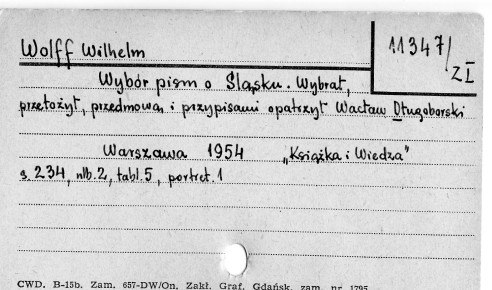 Wolff Wilhelm
11347/
ZI
Wybór pism o Śląsku. Wybrał,
przełożył, przedmową i przypisami opatrzył Wacław Długoborski
Warszawa 1954 „Książka i Wiedza"
s. 234, nlb. 2, tabl. 5, portret. 1
CWD. B-15b. Zam. 657-DW/On. Zakł. Graf. Gdańsk, zam. nr 1795